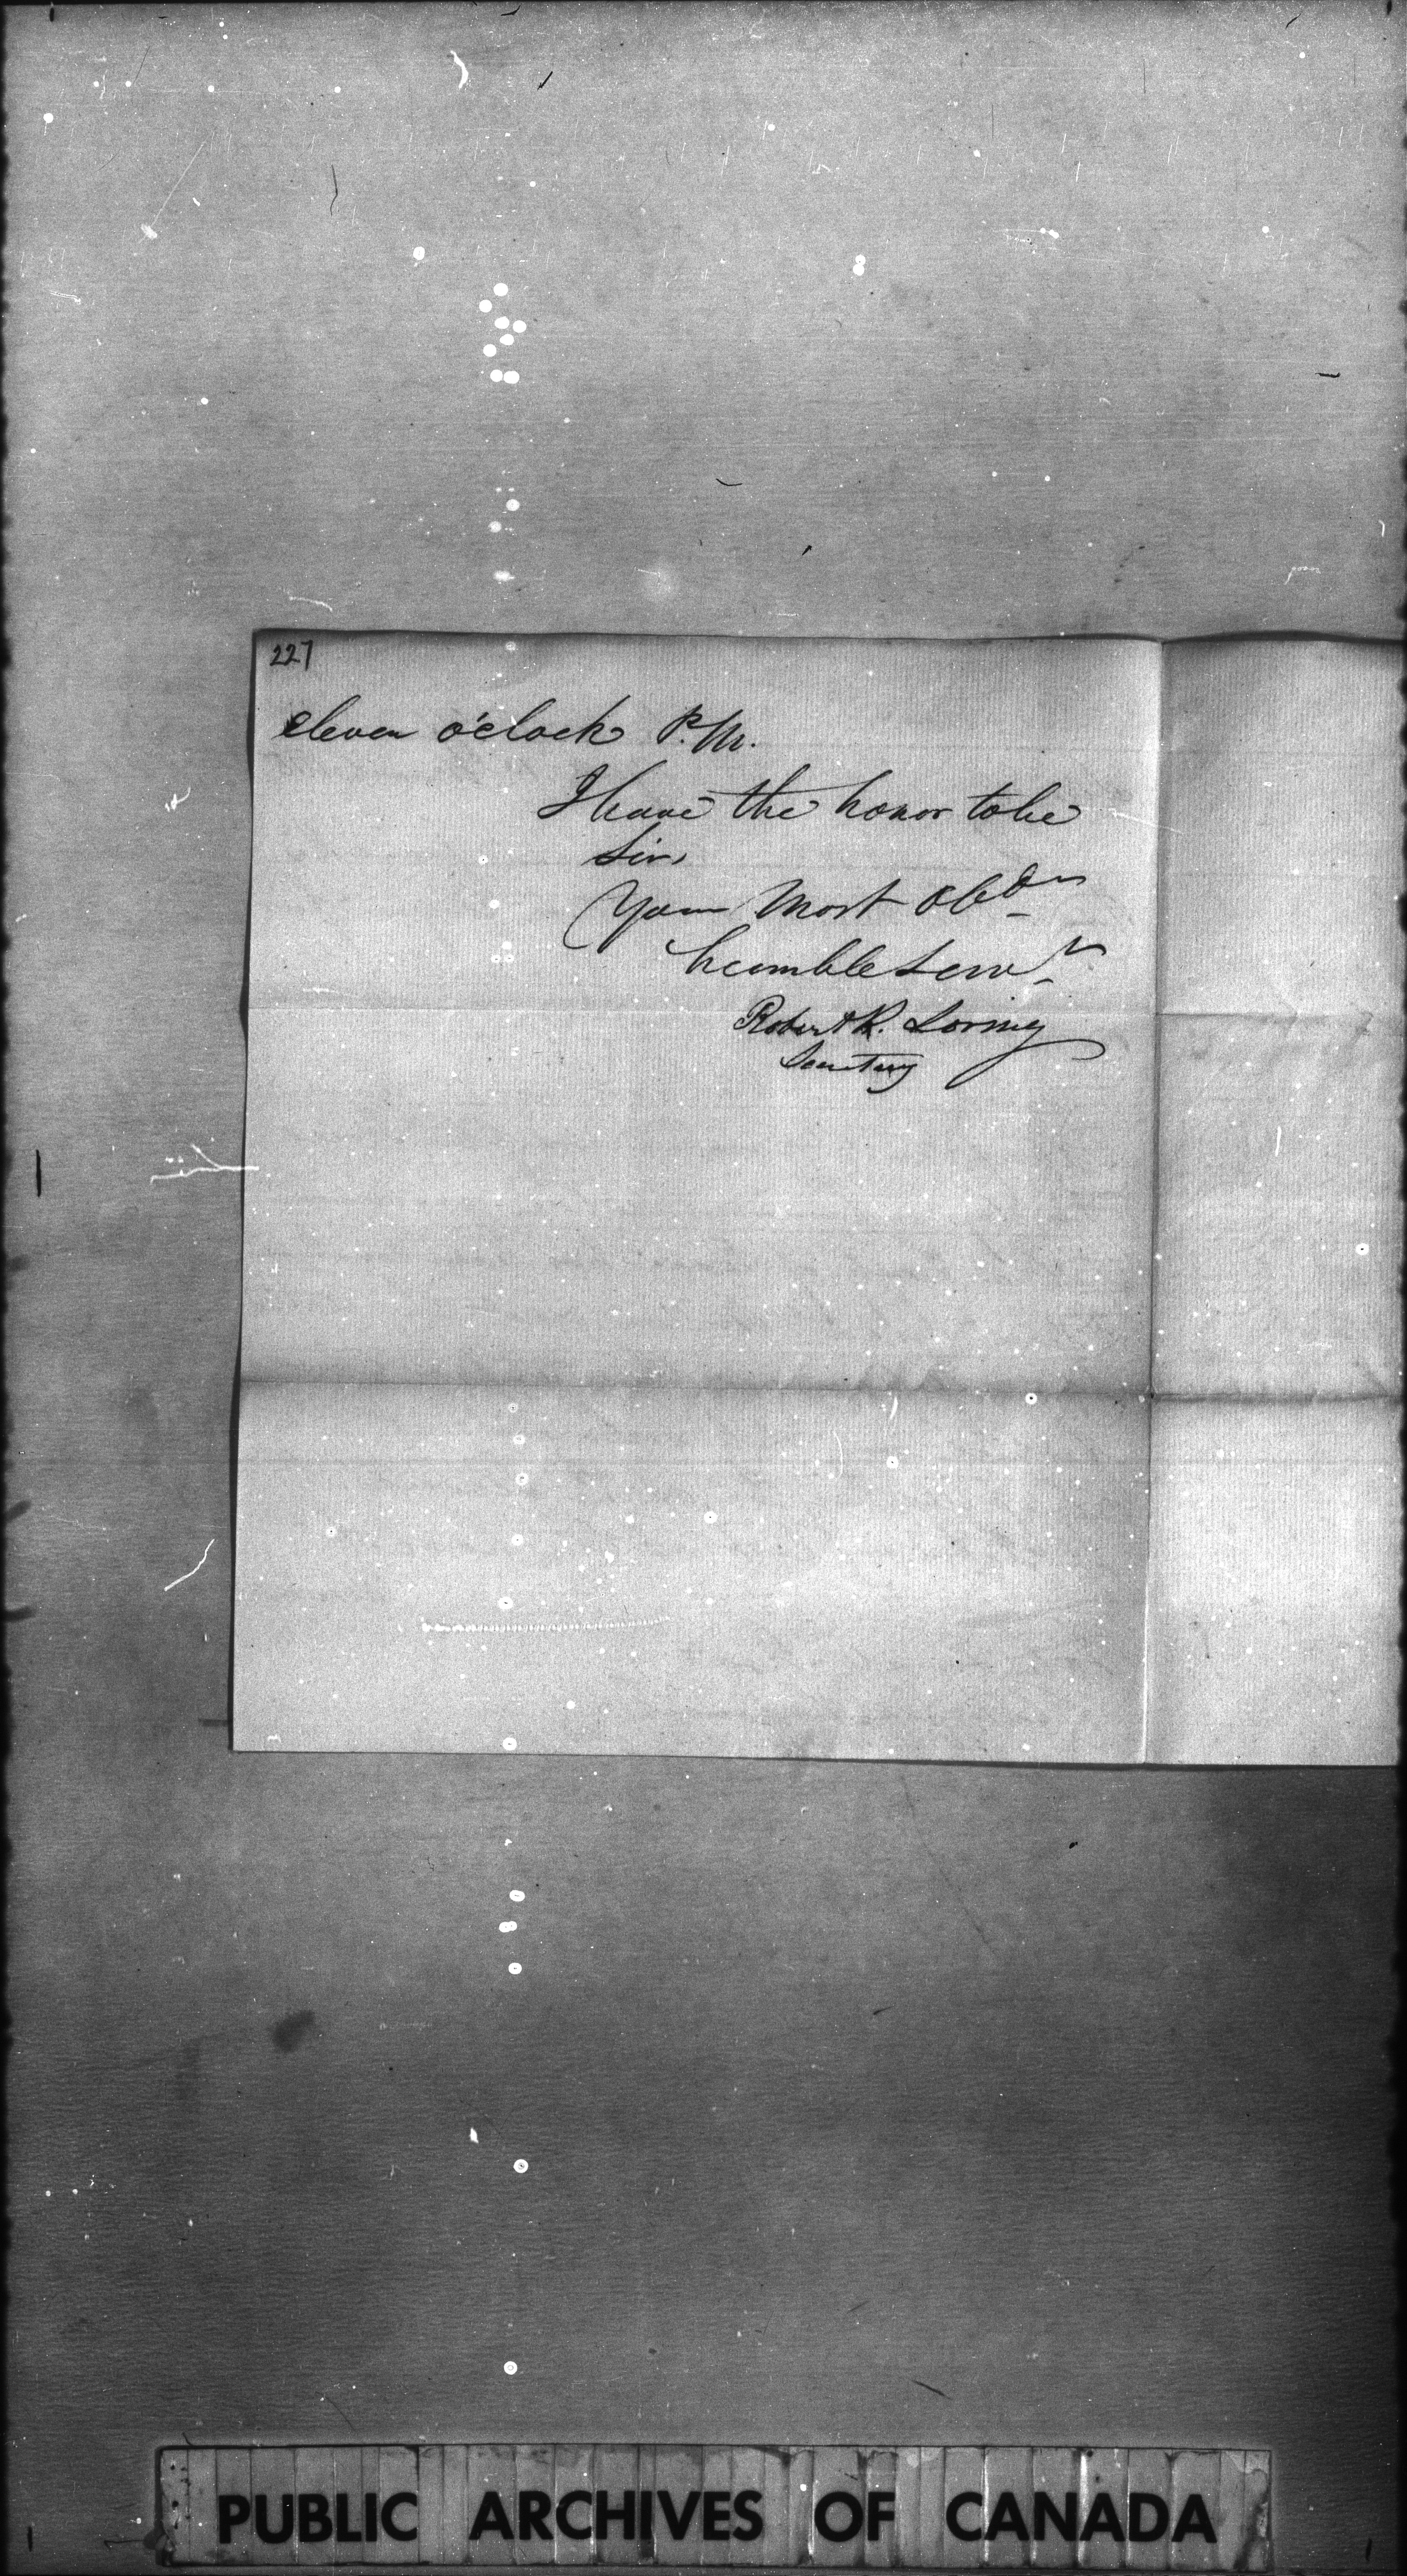 227
eleven o'clock P.M.
I have the honor to be
Sir,
Your Most Obdt
humble Servt
Robert R. Loring
Secretary
PUBLIC ARCHIVES OF CANADA